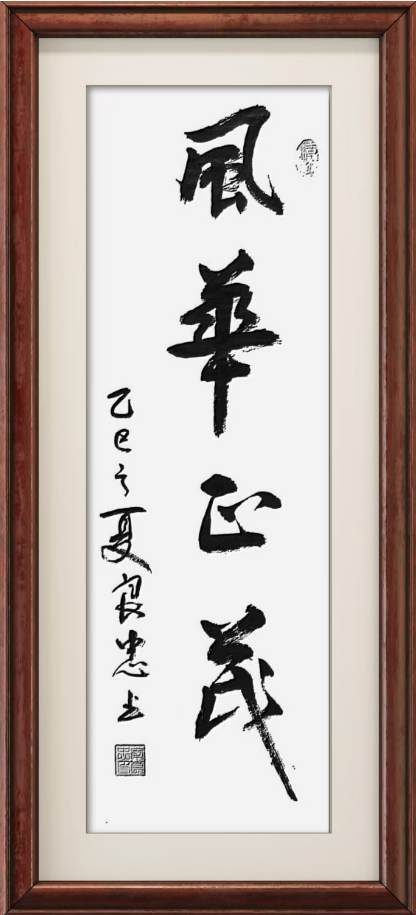 風華正茂
乙巳之夏良忠书